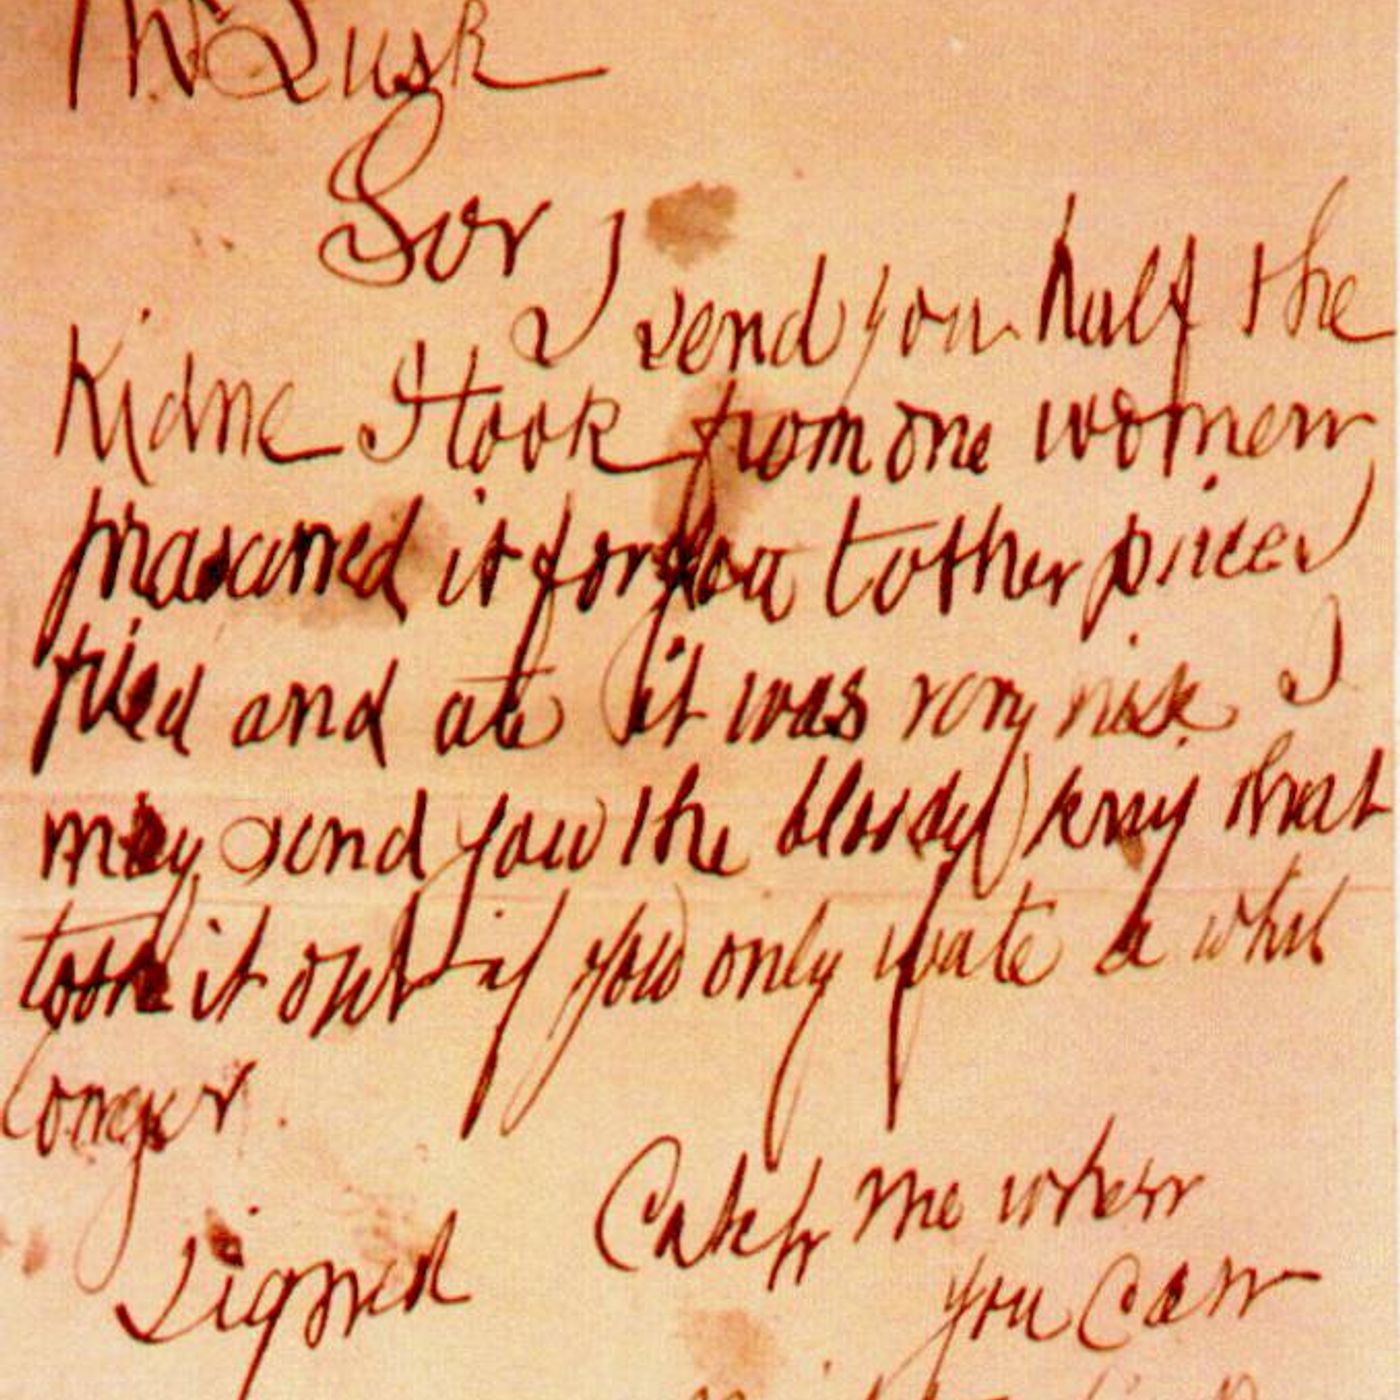 Mr Lusk
Sor
I send you half the
Kidne I took from one women
prasarved it for you tother piece
fried and ate it was very nise I
may send you the bloody knif that
took it out if you only wate a whil
longer.
signed
Catch me when
you can